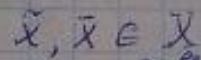 x̃, x̄ ∈ X